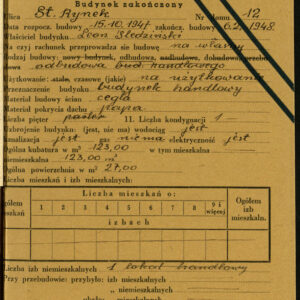 Budynek zakończony
Ulica St. Rynek Nr domu 12
Data rozpocz. budowy 15.10.1947 zakończ. budowy 6.2.1948.
Właściciel budynku Leon Śledziński
Na czyj rachunek przeprowadza się budowę na własny
budowa: nowy budynek, odbudowa, nadbudowa, dobudowa, przebudowa
nowa odbudowa bud.
Użytkowanie: stałe, czasowe (jakie) na użytkowanie
Przeznaczenie budynku budynek handlowy
Materiał budowy ścian cegła
Materiał pokrycia dachu papa
Liczba pięter parter 11. Liczba kondygnacji 1
Uzbrojenie budynku: (jest, nie ma) wodociąg jest
kanalizacja jest gaz niema elektryczność jest
Ogólna kubatura w m³ 123,00 w tym mieszkalna
niemieszkalna 123,00 m³
Ogólna powierzchnia w m² 27,00
Liczba mieszkań i izb mieszkalnych:
Liczba mieszkań o:
Ogółem mieszkań 1 2 3 4 5 6 7 8 9 i więcej Ogółem izb mieszkaln.
izbach
Liczba izb niemieszkalnych 1 lokal handlowy
Przy przebudowie: przybyło: izb mieszkalnych
" niemieszkalnych